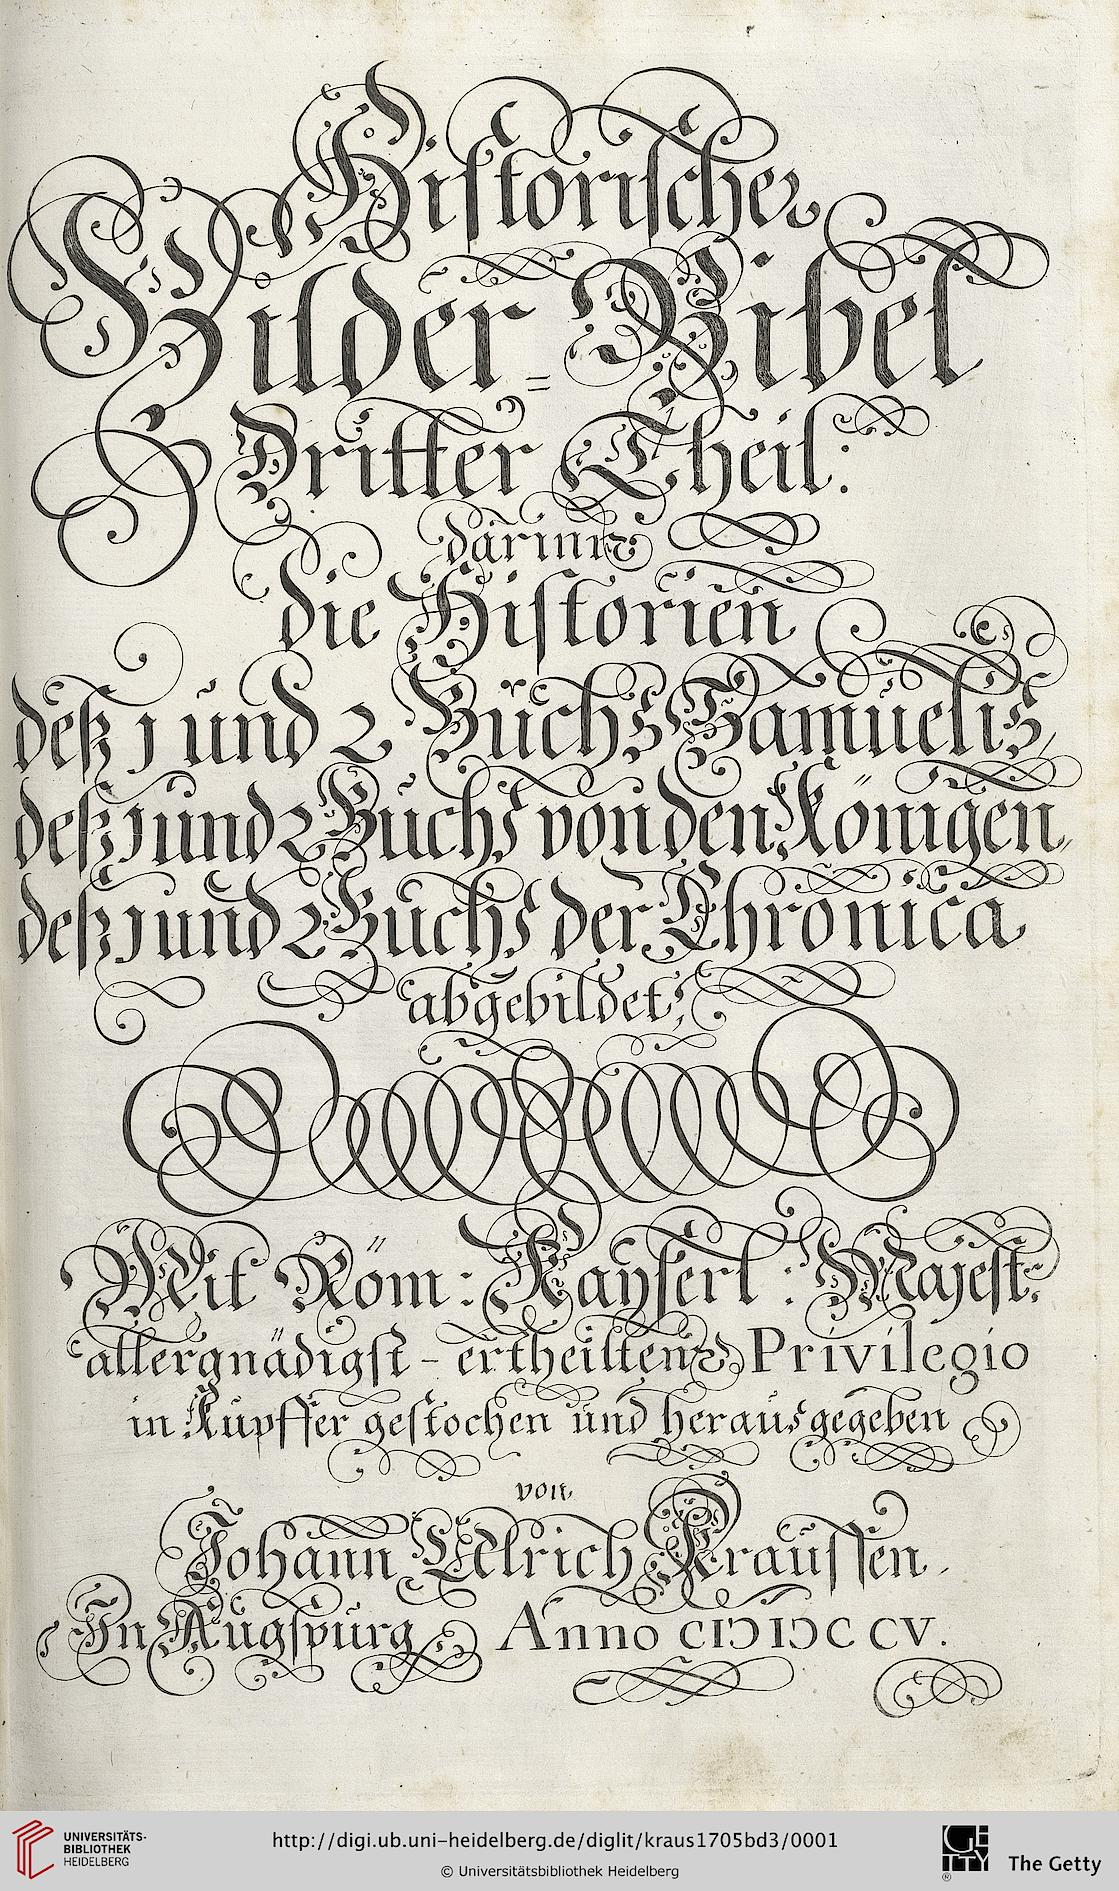 Historische
Bilder=Bibel
Dritter Theil:
darinn
die Historien
deß 1 und 2 Buchs Samuelis,
deß 1 und 2 Buchs von den Königen,
deß 1 und 2 Buchs der Chronica
abgebildet;
Mit Röm: Kayserl: Majest:
allergnädigst-ertheilten Privilegio
in Kupffer gestochen und herausgegeben
von
Johann Ulrich Kraussen.
In Augspurg Anno CIↃ IↃC CV.
UNIVERSITÄTS-
BIBLIOTHEK
HEIDELBERG
http://digi.ub.uni-heidelberg.de/diglit/kraus1705bd3/0001
© Universitätsbibliothek Heidelberg
GETTY
The Getty